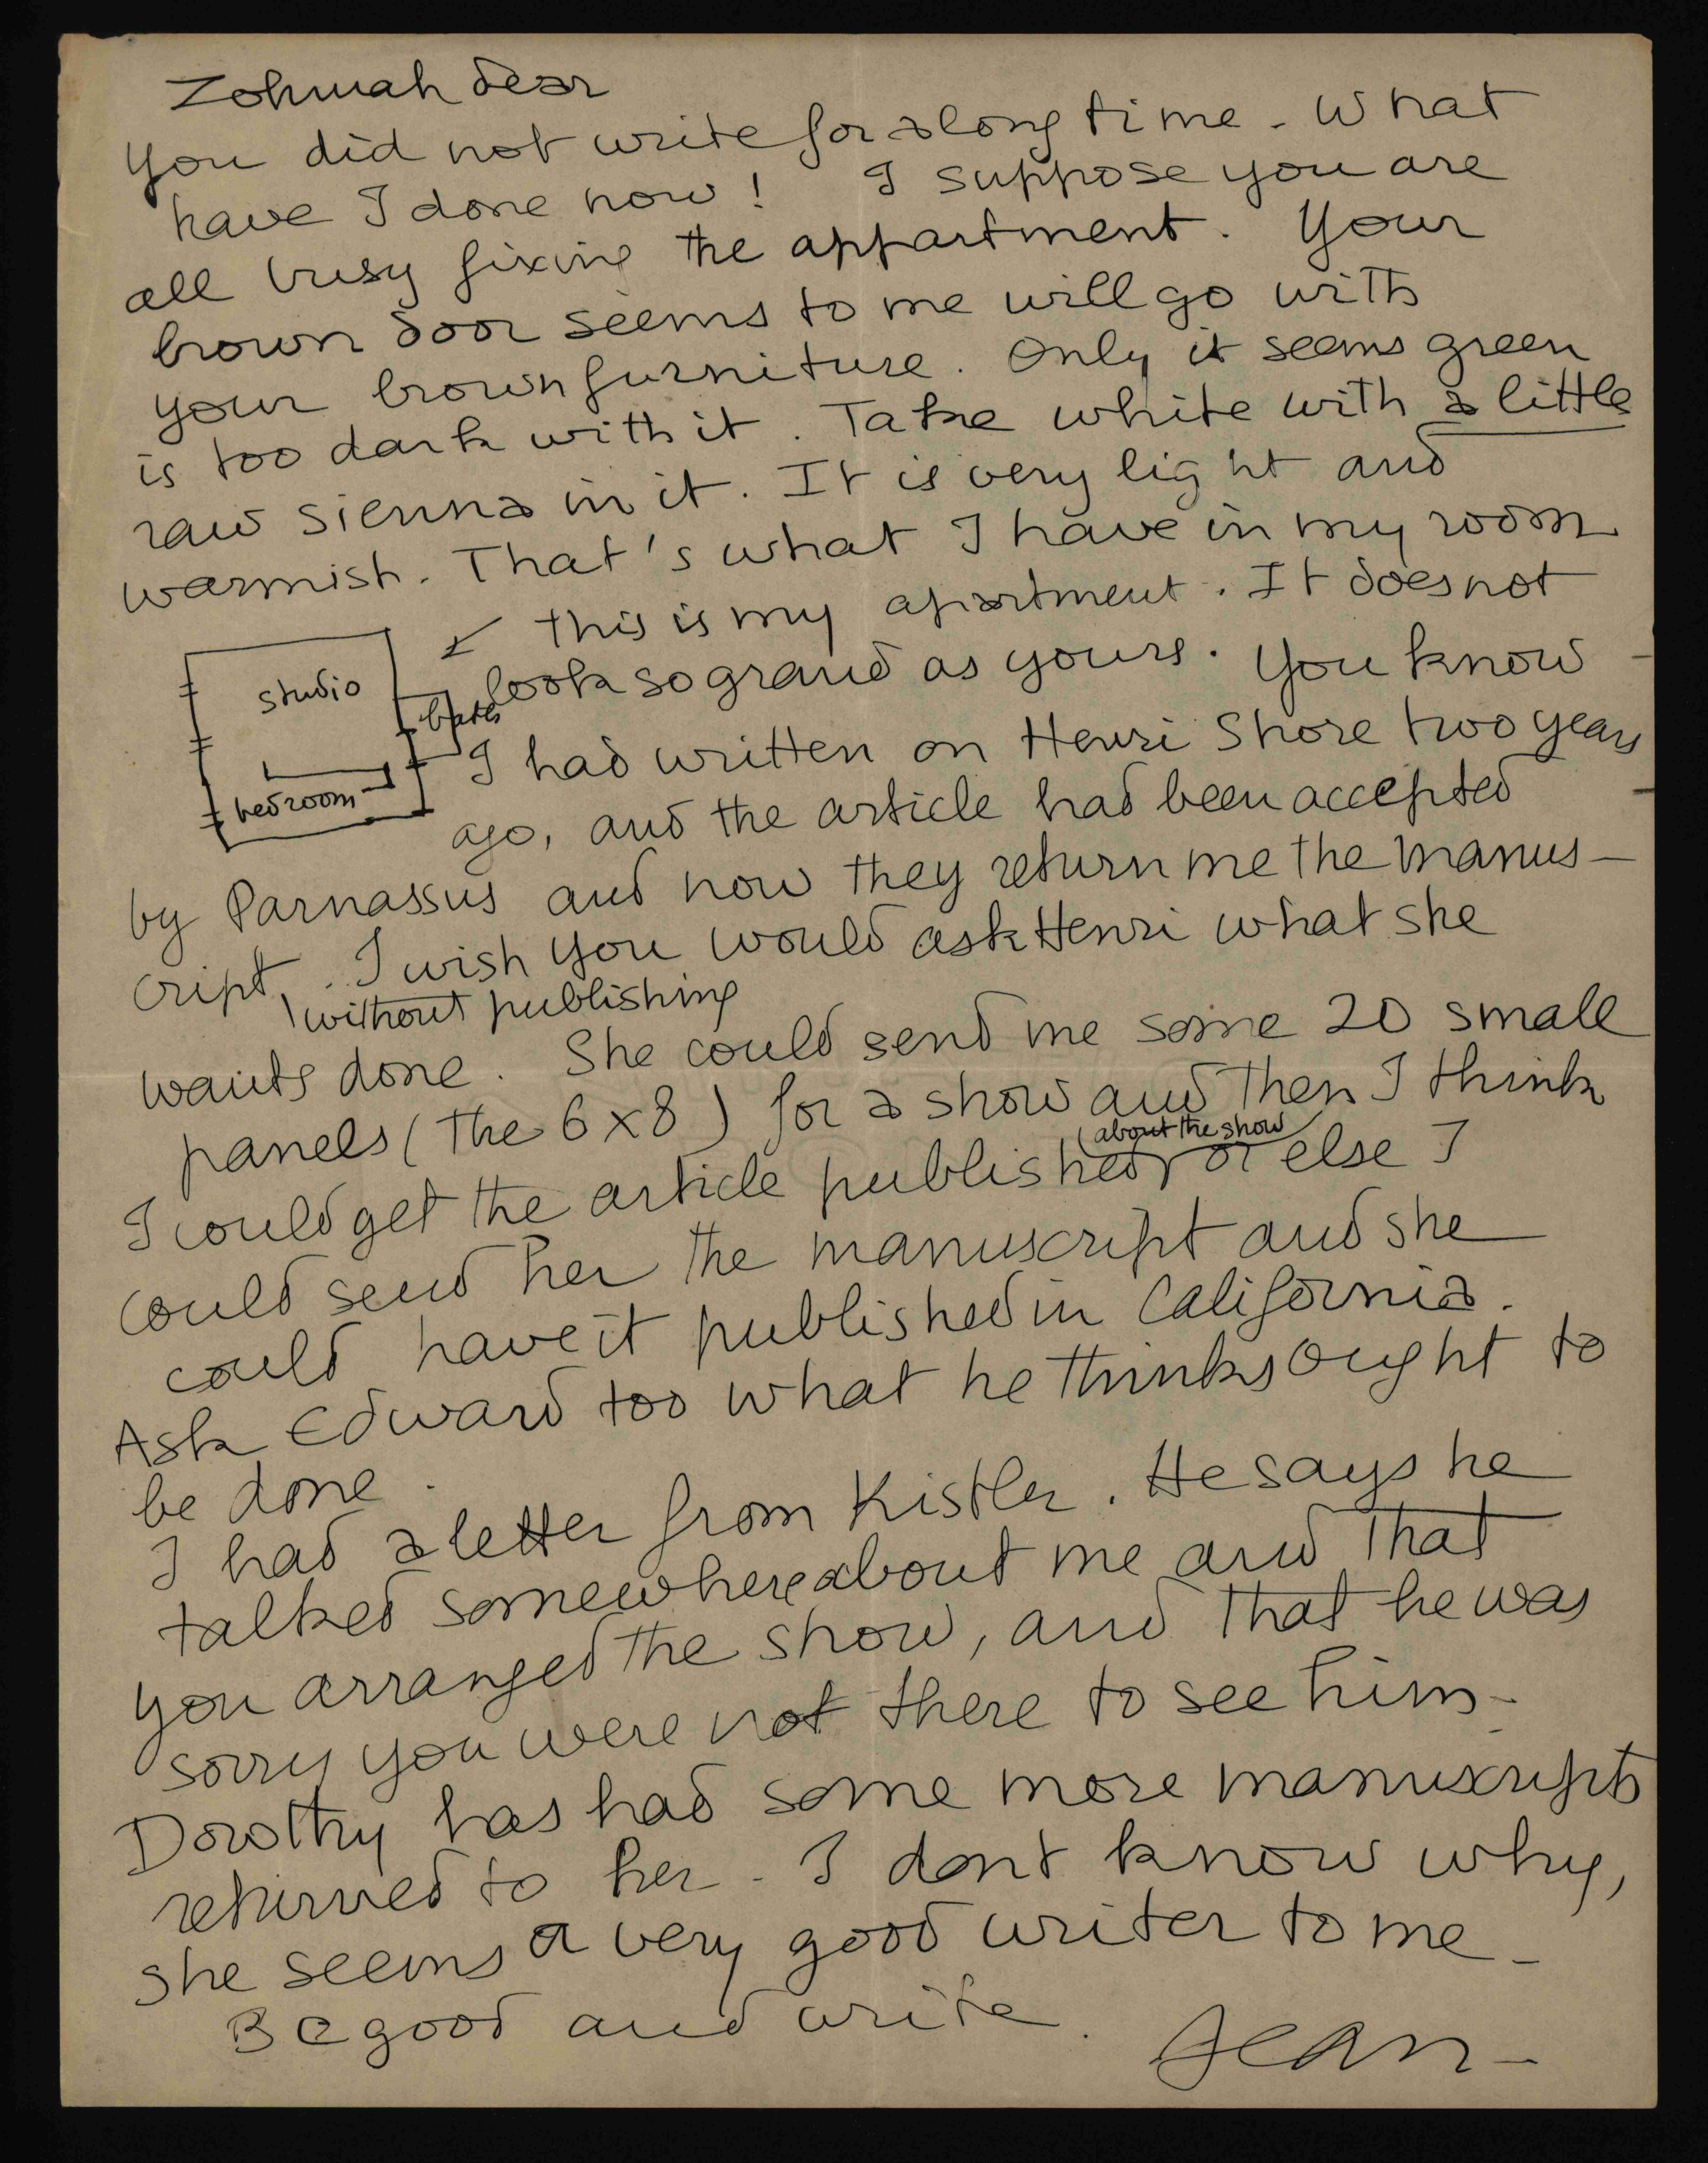 Zohmah dear
You did not write for a long time. What
have I done now! I suppose you are
all busy fixing the appartment. Your
brown door seems to me will go with
your brown furniture. Only it seems green
is too dark with it. Take white with a little
raw sienna in it. It is very light and
warmish. That's what I have in my room
↙ this is my apartment. It does not
studio
look so grand as yours. You know
bath
I had written on Henri Shore two years
bedroom
ago, and the article had been accepted
by Parnassus and now they return me the manus-
cript. I wish you would ask Henri what she
without publishing
wants done. She could send me some 20 small
panels (the 6x8) for a show and then I think
(about the show
I could get the article published or else I
could send her the manuscript and she
could have it published in California.
Ask Edward too what he thinks ought to
be done.
I had a letter from Kistler. He says he
talked somewhere about me and that
you arranged the show, and that he was
sorry you were not there to see him.
Dorothy has had some more manuscripts
returned to her. I dont know why,
she seems a very good writer to me -
Be good and write.
Jean -